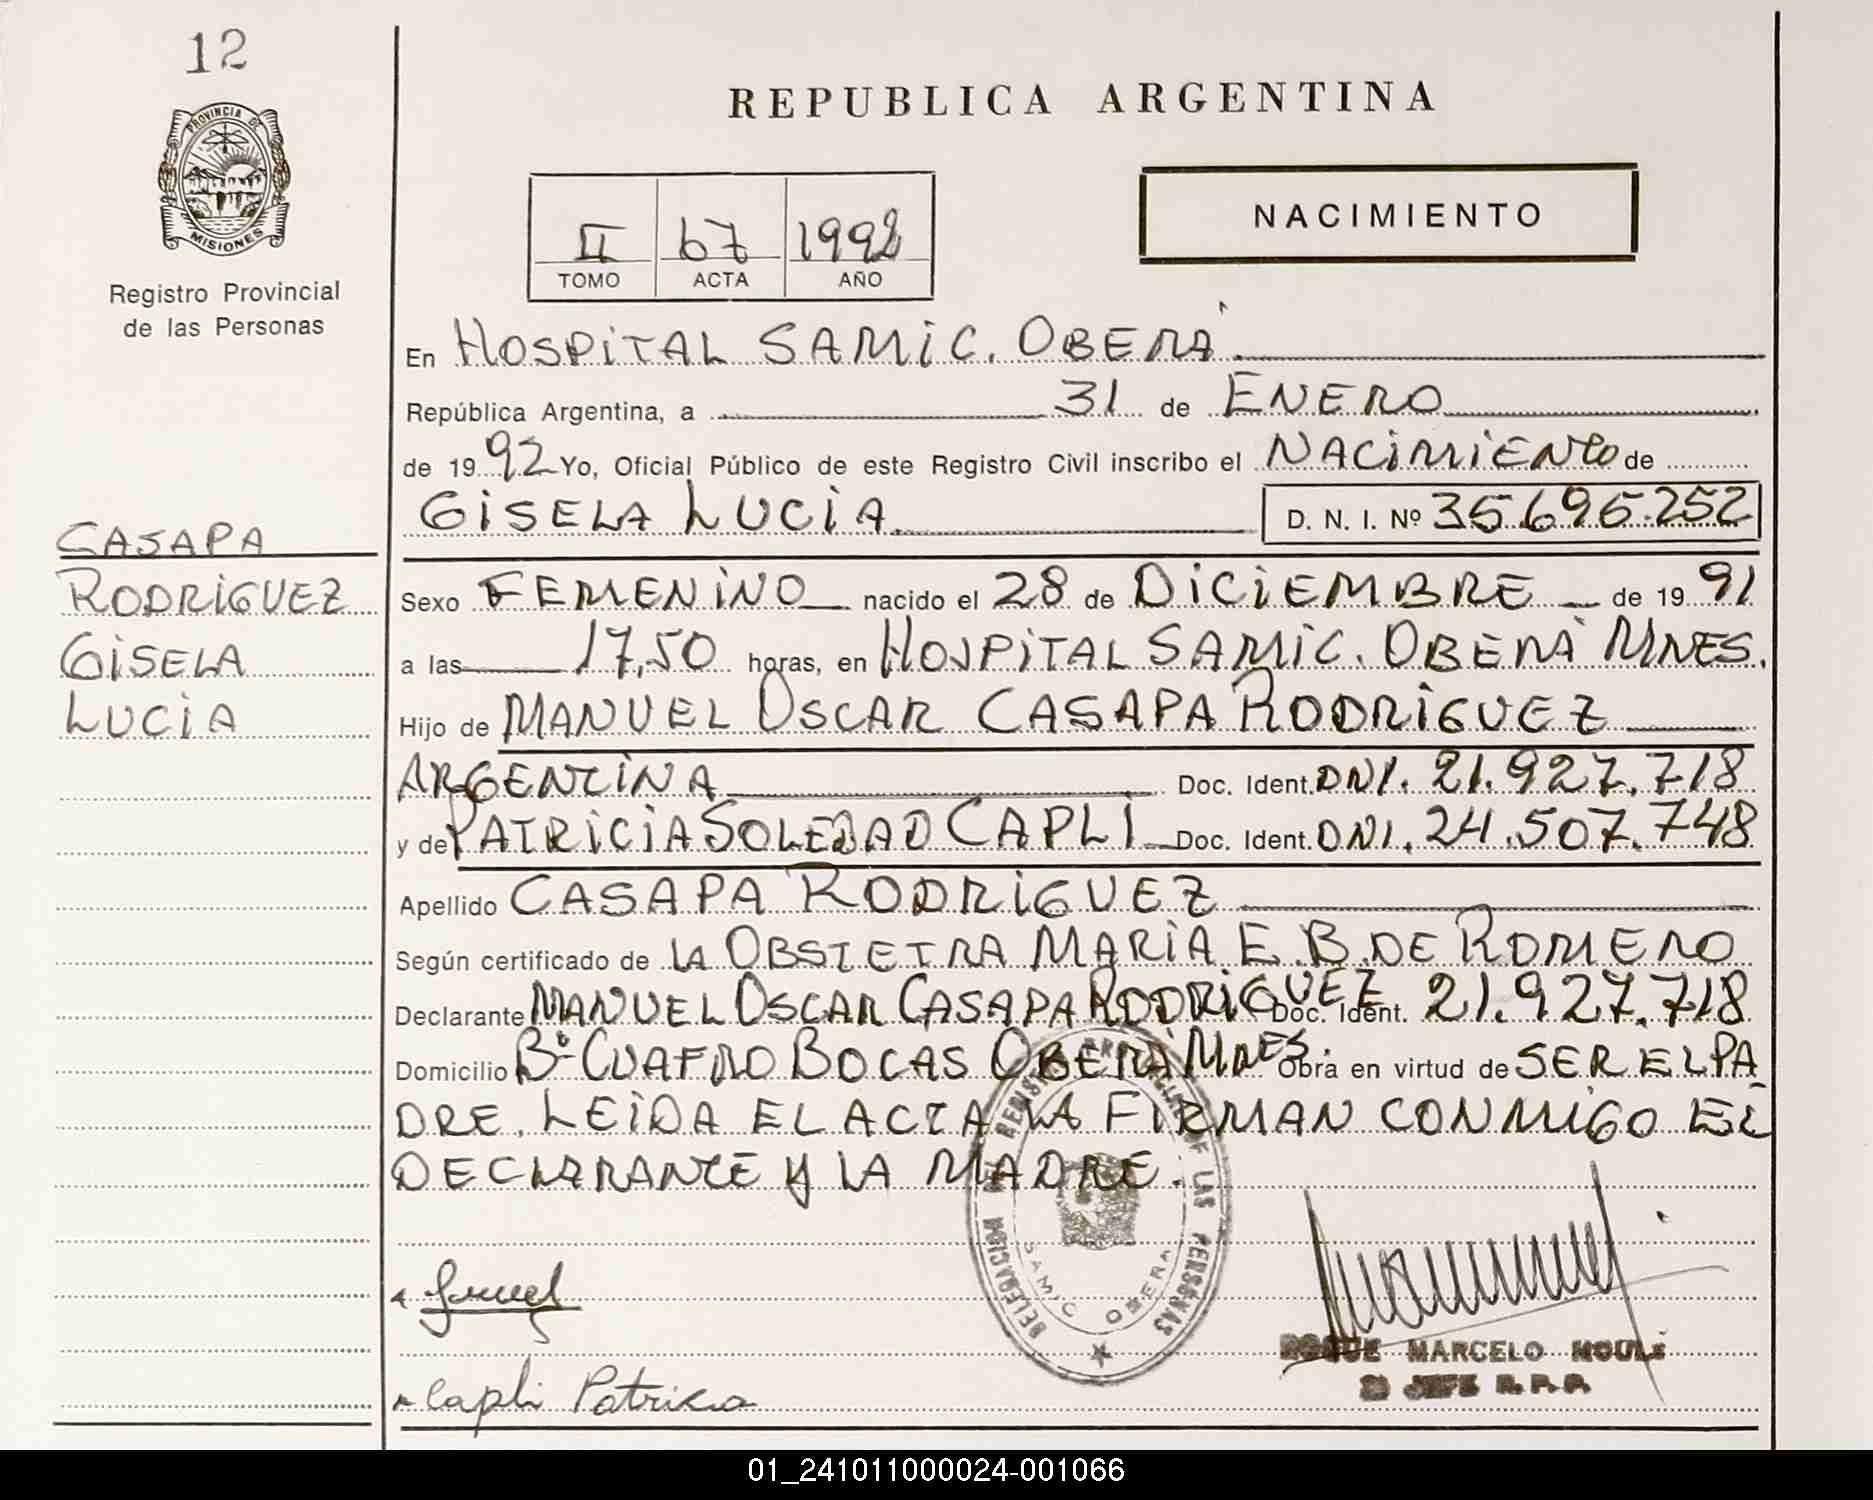 12
PROVINCIA DE
MISIONES
Registro Provincial
de las Personas
REPUBLICA ARGENTINA
II 67 1992
TOMO ACTA AÑO
NACIMIENTO
En HOSPITAL SAMIC. OBERÁ
República Argentina, a 31 de ENERO
de 1992 Yo, Oficial Público de este Registro Civil inscribo el NACIMIENTO de
GISELA LUCIA D. N. I. Nº 35.696.252
CASAPA
RODRIGUEZ
GISELA
LUCIA
Sexo FEMENINO nacido el 28 de DICIEMBRE de 1991
a las 17,50 horas, en HOSPITAL SAMIC. OBERÁ MNES.
Hijo de MANUEL OSCAR CASAPA RODRIGUEZ
ARGENTINA Doc. Ident. DNI. 21.927.718
y de PATRICIA SOLEDAD CAPLI Doc. Ident. DNI. 24.507.748
Apellido CASAPA RODRIGUEZ
Según certificado de LA OBSTETRA MARIA E. B. DE ROMERO
Declarante MANUEL OSCAR CASAPA RODRIGUEZ Doc. Ident. 21.927.718
Domicilio Bº CUATRO BOCAS OBERÁ MNES. Obra en virtud de SER EL PA
DRE. LEIDA EL ACTA LA FIRMAN CONMIGO EL
DECLARANTE Y LA MADRE.
DELEGACION DEL REGISTRO PROVINCIAL DE LAS PERSONAS
SAMIC OBERA
MARCELO
JEFE R.P.P.
Capli Patricia
01_241011000024-001066